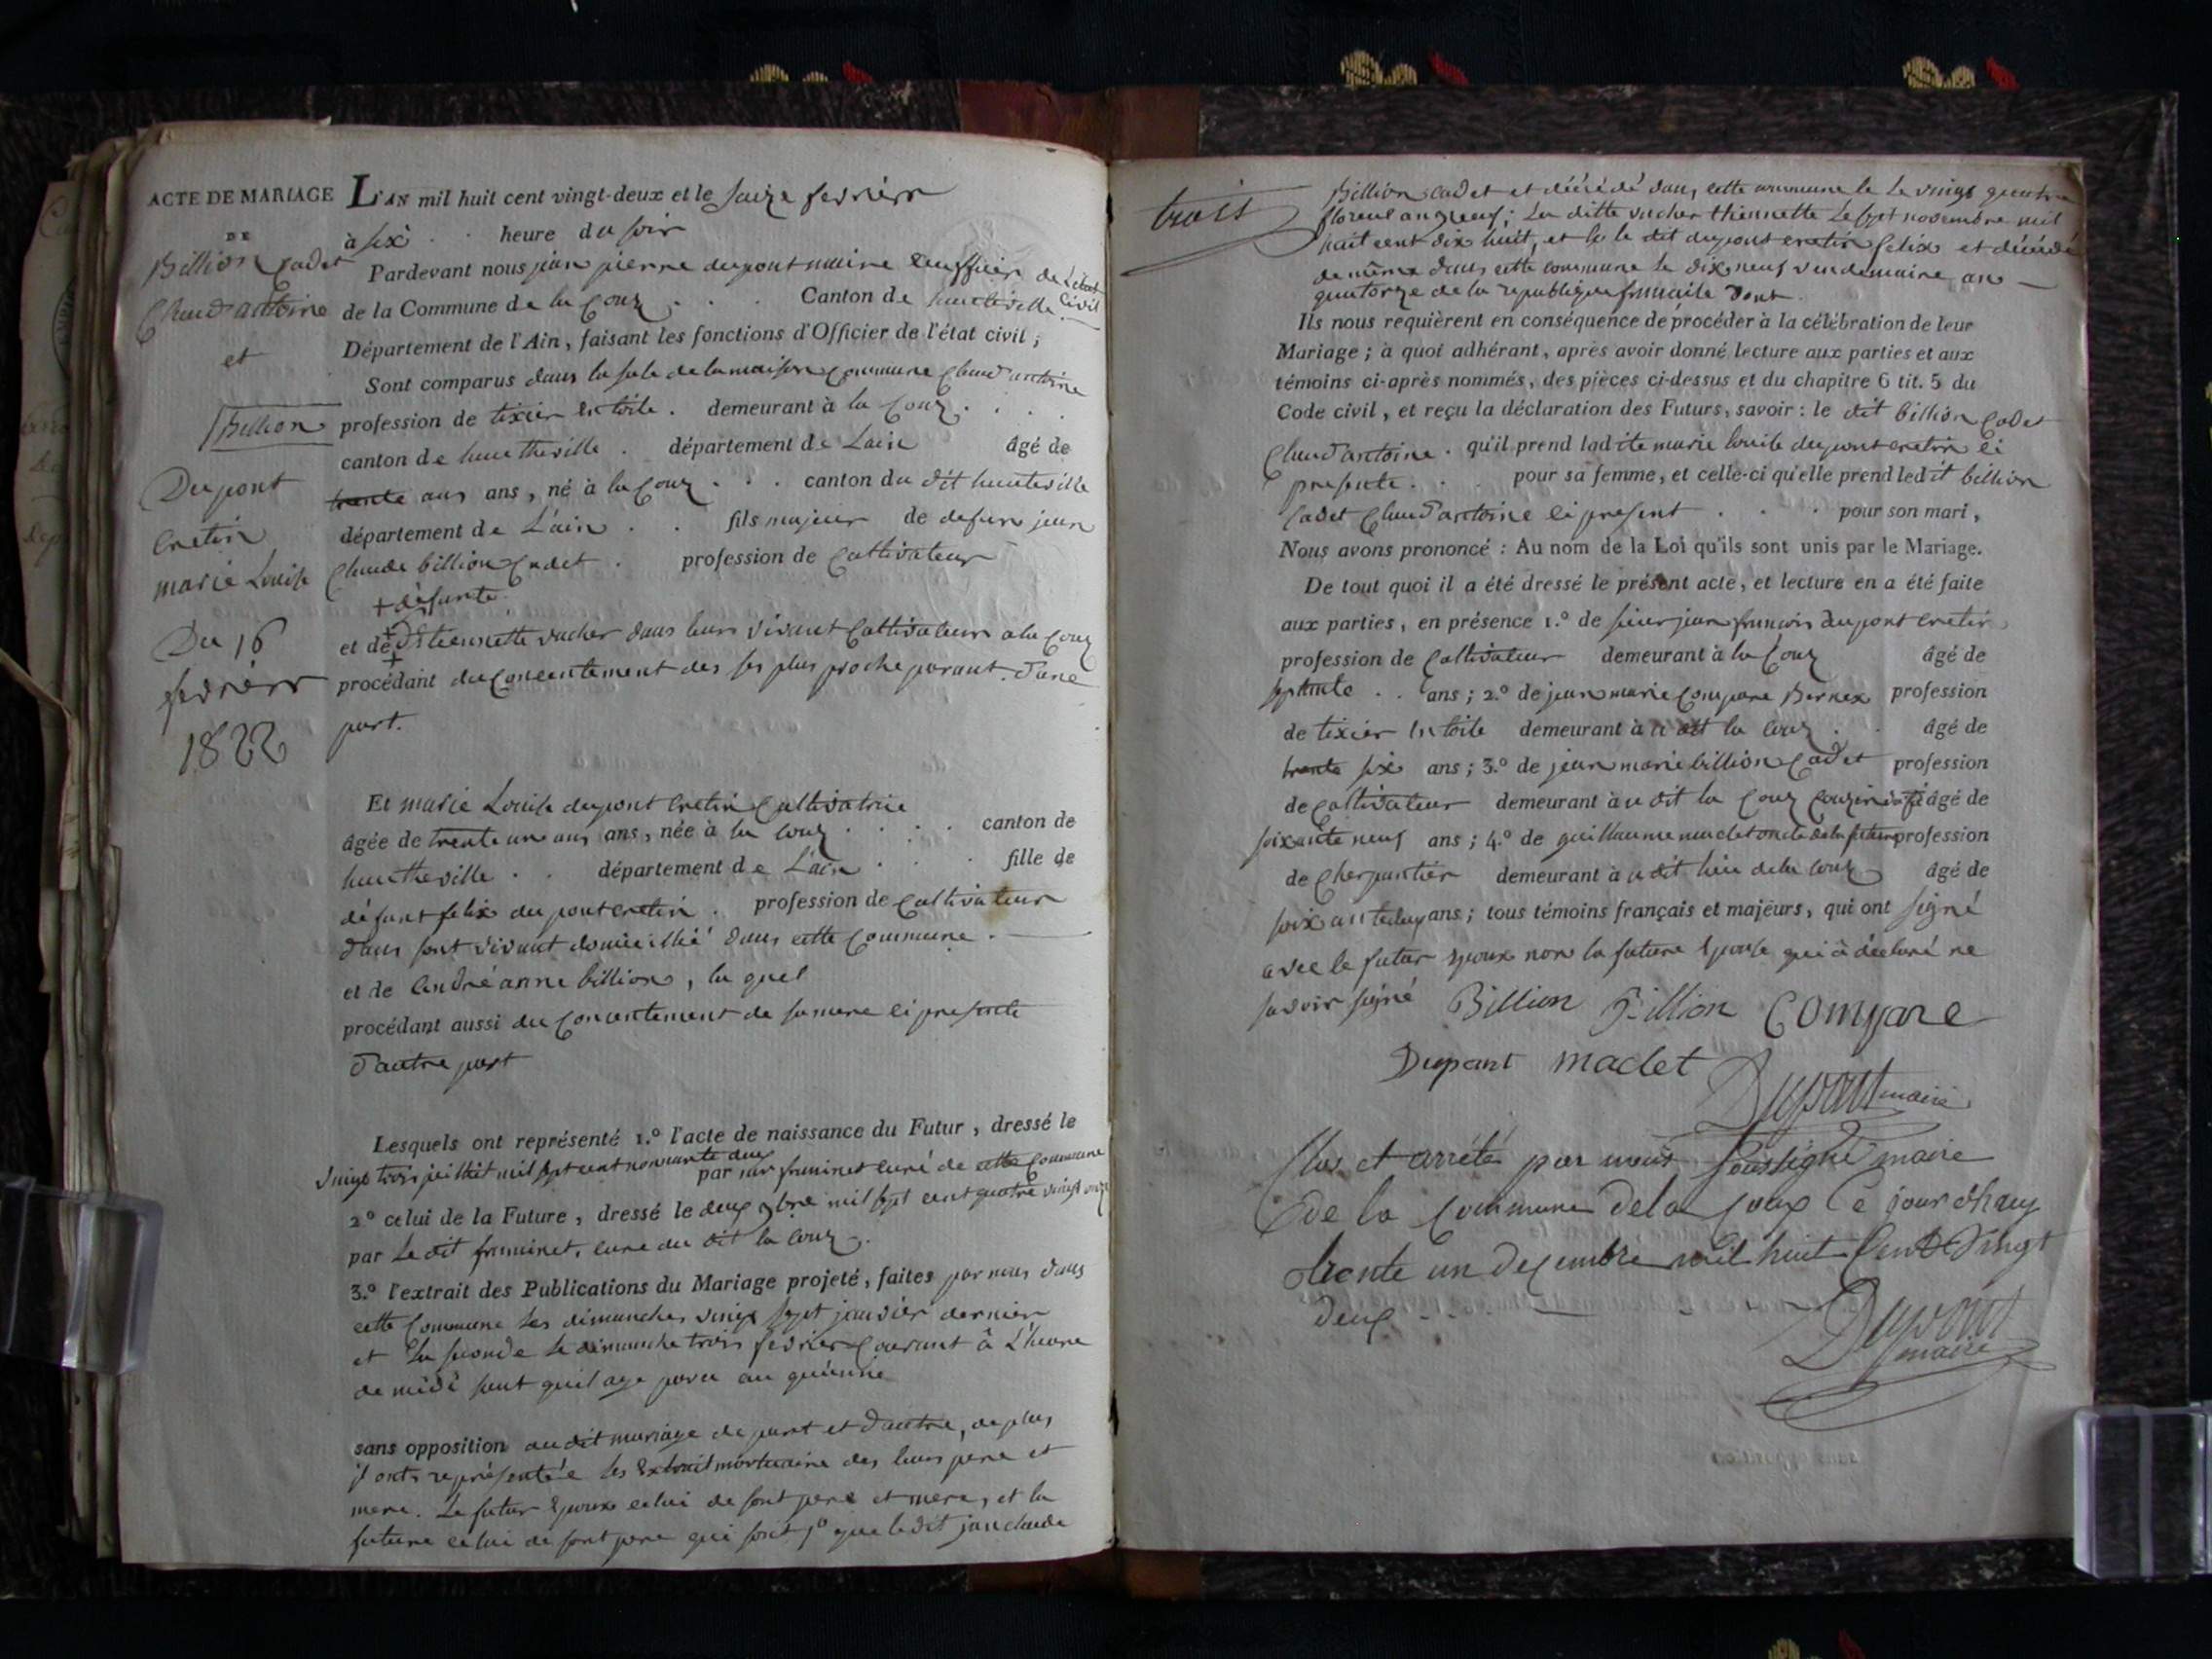 ACTE DE MARIAGE
DE
Billion Cadet
Claud antoine
et
Billion
Dupont
Cretin
marie Louise
Du 16
fevrierr
1822
L'AN mil huit cent vingt-deux et le saize fevrierr
à six . . heure du soir
Pardevant nous jean pierre dupont maire l'eufficier de l'etat
civil
de la Commune de la Couz . . . Canton de hautheville
Département de l'Ain, faisant les fonctions d'Officier de l'état civil ;
Sont comparus dans la sale de la maison commune Claud'antoine
profession de tixier en toile . demeurant à la Couz . . . .
canton de hautheville . département de Lain âgé de
trente ans ans, né à la Couz . . . canton du dit hauteville
département de L'ain . . fils majeur de defun jean
Claude billion Cadet . profession de Cultivateur
+ défunte
et de Etiennette vacher dans leurs vivant Cultivateurs a la Couz
procédant du Concentement des ses plus proche parant . d'une
part.
Et marie Louise dupont Cretin Cultivatrice
âgée de trente un ans ans, née à la Couz . . . . canton de
hautheville . . département de L'ain . . . fille de
défunt felix dupont cretin . profession de Cultivateur
dans sont vivant domicillié dans cette Commune .
et de André anne billion, la quel
procédant aussi du Concentement de sa mere ci presente
d'autre part
Lesquels ont représenté 1.º l'acte de naissance du Futur, dressé le
vingt trois juillet mil sept cent nonnante deux par sir framinet curé de cette Commune
2.º celui de la Future, dressé le deux 9bre mil sept cent quatre vingt onze
par Le dit framinet, cure du dit la Couz .
3.º l'extrait des Publications du Mariage projeté, faites par nous dans
cette Commune les dimanches vingt sept janvier dernier
et la seconde le dimanche trois fevrier Courant à L'heure
de midi sent quil aye paru au queunne
sans opposition au dit mariage de part et d'autre, de plus
il onts représentée les Extrait mortuaire des leurs pere et
mere. Le futur Epoux celui de sont pere et mere, et la
future celui de sont pere qui sont 1º que le dit jean claude
trois
Billion cadet et décédé dans cette commune le Le vingt quatre
floreal an neuf ; La ditte vacher thiennette Le sept novembre mil
huit cent dix huit, et le dit dupont cretin felix et décédé
de même dans cette commune le dix neuf vendemaire an
quatorze de la republique francaise dont .
Ils nous requièrent en conséquence de procéder à la célébration de leur
Mariage ; à quoi adhérant, après avoir donné lecture aux parties et aux
témoins ci-après nommés, des pièces ci-dessus et du chapitre 6 tit. 5 du
Code civil, et reçu la déclaration des Futurs, savoir : le dit billion Cadet
Claud'antoine . qu'il prend ladite marie louise dupont cretin ci
presente . . . pour sa femme, et celle-ci qu'elle prend ledit billion
Cadet Claud'antoine ci present . . . pour son mari,
Nous avons prononcé : Au nom de la Loi qu'ils sont unis par le Mariage.
De tout quoi il a été dressé le présent acte, et lecture en a été faite
aux parties, en présence 1.º de sieur jean francois dupont cretin
profession de Cultivateur demeurant à la Couz âgé de
septante . . ans ; 2.º de jean marie Compare Bernex profession
de tixier en toile demeurant à u dit la Couz . . âgé de
trente six ans ; 3.º de jean marie billion Cadet profession
de Cultivateur demeurant à u dit la Couz Couzin âgé de
soixante neuf ans ; 4.º de guillaume maclet oncle de la future profession
de Cherpantier demeurant à u dit lieu de la Couz âgé de
ans ; tous témoins français et majeurs, qui ont signé
avec le futur Epoux non la future Epouse qui à déclaré ne
savoir signé Billion Billion Compare
Dupant maclet
Dupont maire
Clos et arrété par nous soussigné maire
de la Commune de la Coux Ce jourdhuy
trente un decembre mil huit Cent Vingt
deux
Dupont
maire